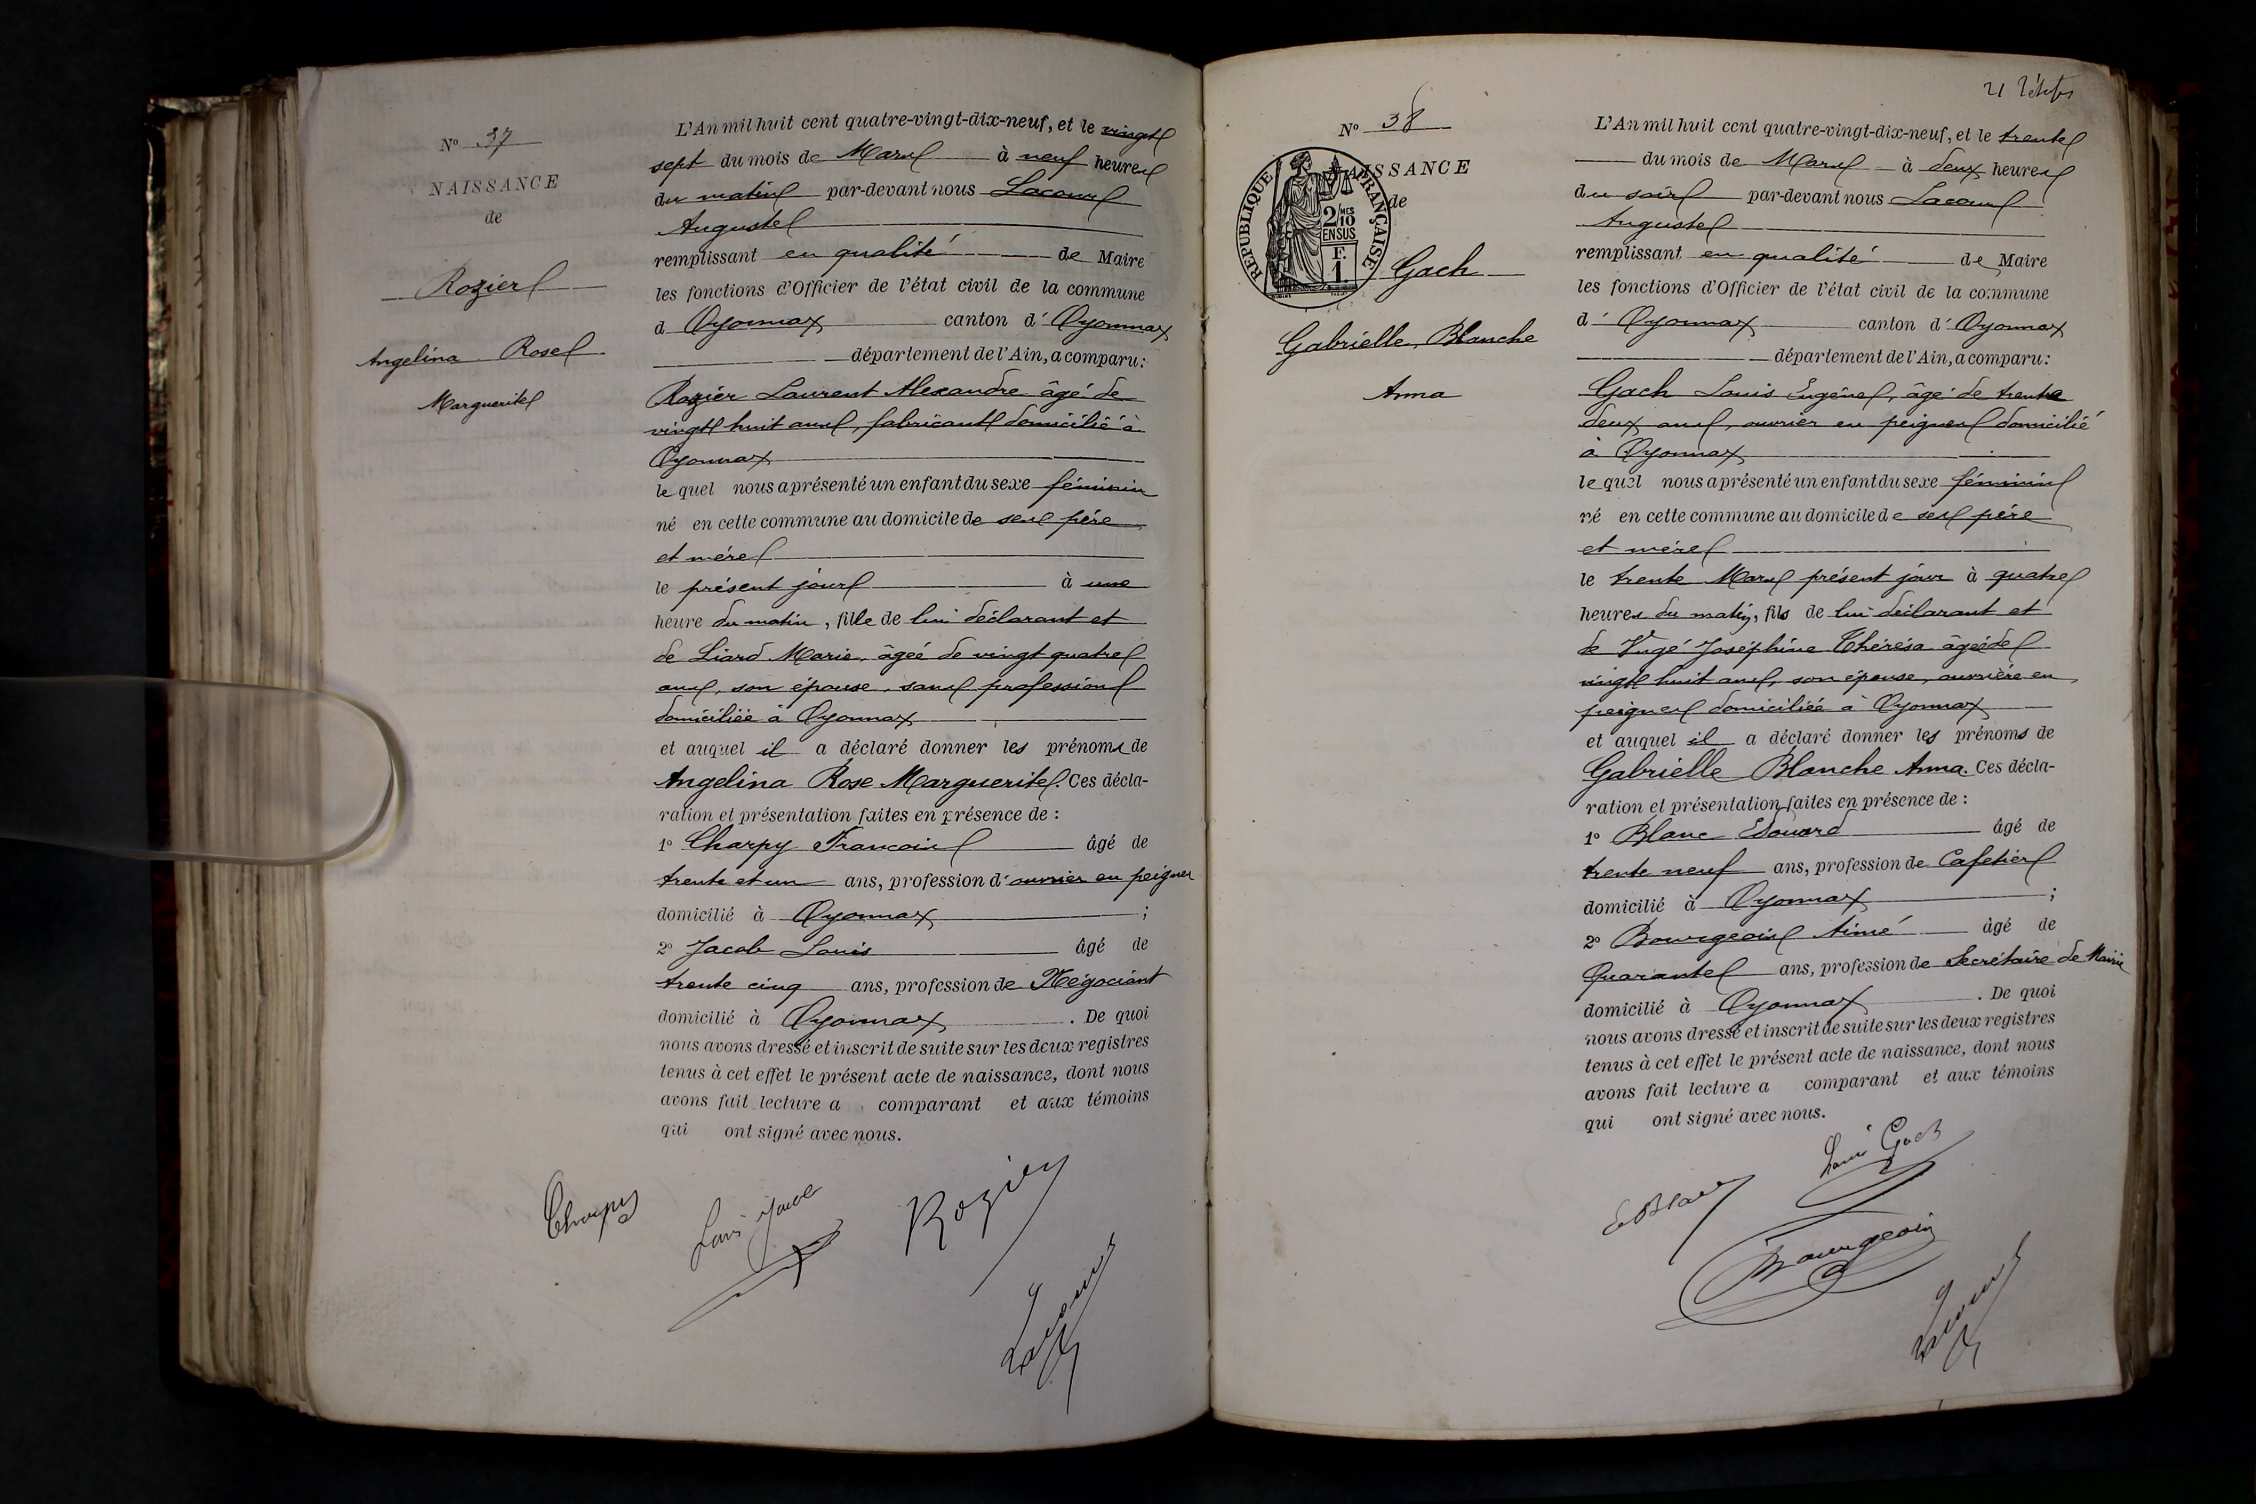 N° 37
NAISSANCE
de
Rozier
Angelina Rose
Marguerite
L'An mil huit cent quatre-vingt-dix-neuf, et le vingt
sept du mois de Mars à neuf heures
du matin par-devant nous Lacour
Auguste
remplissant en qualité de Maire
les fonctions d'Officier de l'état civil de la commune
d Oyonnax canton d' Oyonnax
département de l'Ain, a comparu :
Rozier Laurent Alexandre âgé de
vingt huit ans, fabricant domicilié à
Oyonnax
le quel nous a présenté un enfant du sexe féminin
né en cette commune au domicile de ses père
et mère
le présent jour à une
heure du matin, fille de lui déclarant et
de Liard Marie, âgée de vingt quatre
ans, son épouse, sans profession
domiciliée à Oyonnax
et auquel il a déclaré donner les prénoms de
Angelina Rose Marguerite. Ces décla-
ration et présentation faites en présence de :
1° Charpy Francois âgé de
trente et un ans, profession d' ouvrier en peignes
domicilié à Oyonnax ;
2° Jacob Louis âgé de
trente cinq ans, profession de Négociant
domicilié à Oyonnax . De quoi
nous avons dressé et inscrit de suite sur les deux registres
tenus à cet effet le présent acte de naissance, dont nous
avons fait lecture a comparant et aux témoins
qui ont signé avec nous.
Charpy Louis Jacob Rozier
Lacour
21
N° 38
NAISSANCE
de
REPUBLIQUE FRANÇAISE
2/10 MES
EN SUS
F.
1
Gach
Gabrielle Blanche
Anna
L'An mil huit cent quatre-vingt-dix-neuf, et le trente
du mois de Mars à deux heures
du soir par-devant nous Lacour
Auguste
remplissant en qualité de Maire
les fonctions d'Officier de l'état civil de la commune
d' Oyonnax canton d' Oyonnax
département de l'Ain, a comparu :
Gach Louis Eugène, âgé de trente
deux ans, ouvrier en peignes domicilié
à Oyonnax
le quel nous a présenté un enfant du sexe féminin
né en cette commune au domicile de ses père
et mère
le trente Mars présent jour à quatre
heures du matin, fils de lui déclarant et
de Vugé Joséphine Thérésa âgée de
vingt huit ans, son épouse, ouvrière en
peignes domiciliée à Oyonnax
et auquel il a déclaré donner les prénoms de
Gabrielle Blanche Anna. Ces décla-
ration et présentation faites en présence de :
1° Blanc Edouard âgé de
trente neuf ans, profession de Cafetier
domicilié à Oyonnax ;
2° Bourgeois Aimé âgé de
Quarante ans, profession de Secrétaire de Mairie
domicilié à Oyonnax . De quoi
nous avons dressé et inscrit de suite sur les deux registres
tenus à cet effet le présent acte de naissance, dont nous
avons fait lecture a comparant et aux témoins
qui ont signé avec nous.
Louis Gach
E Blanc
Bourgeois
Lacour